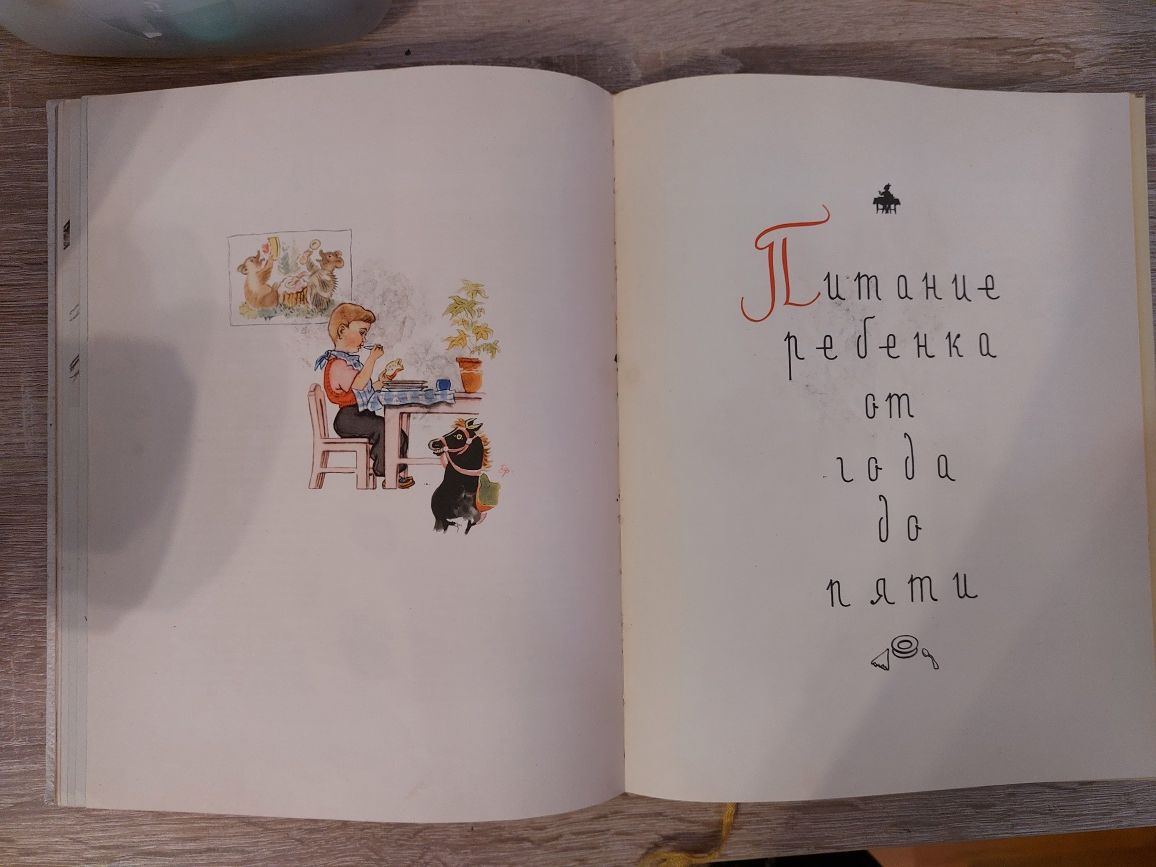 Питание
ребенка
от
года
до
пяти